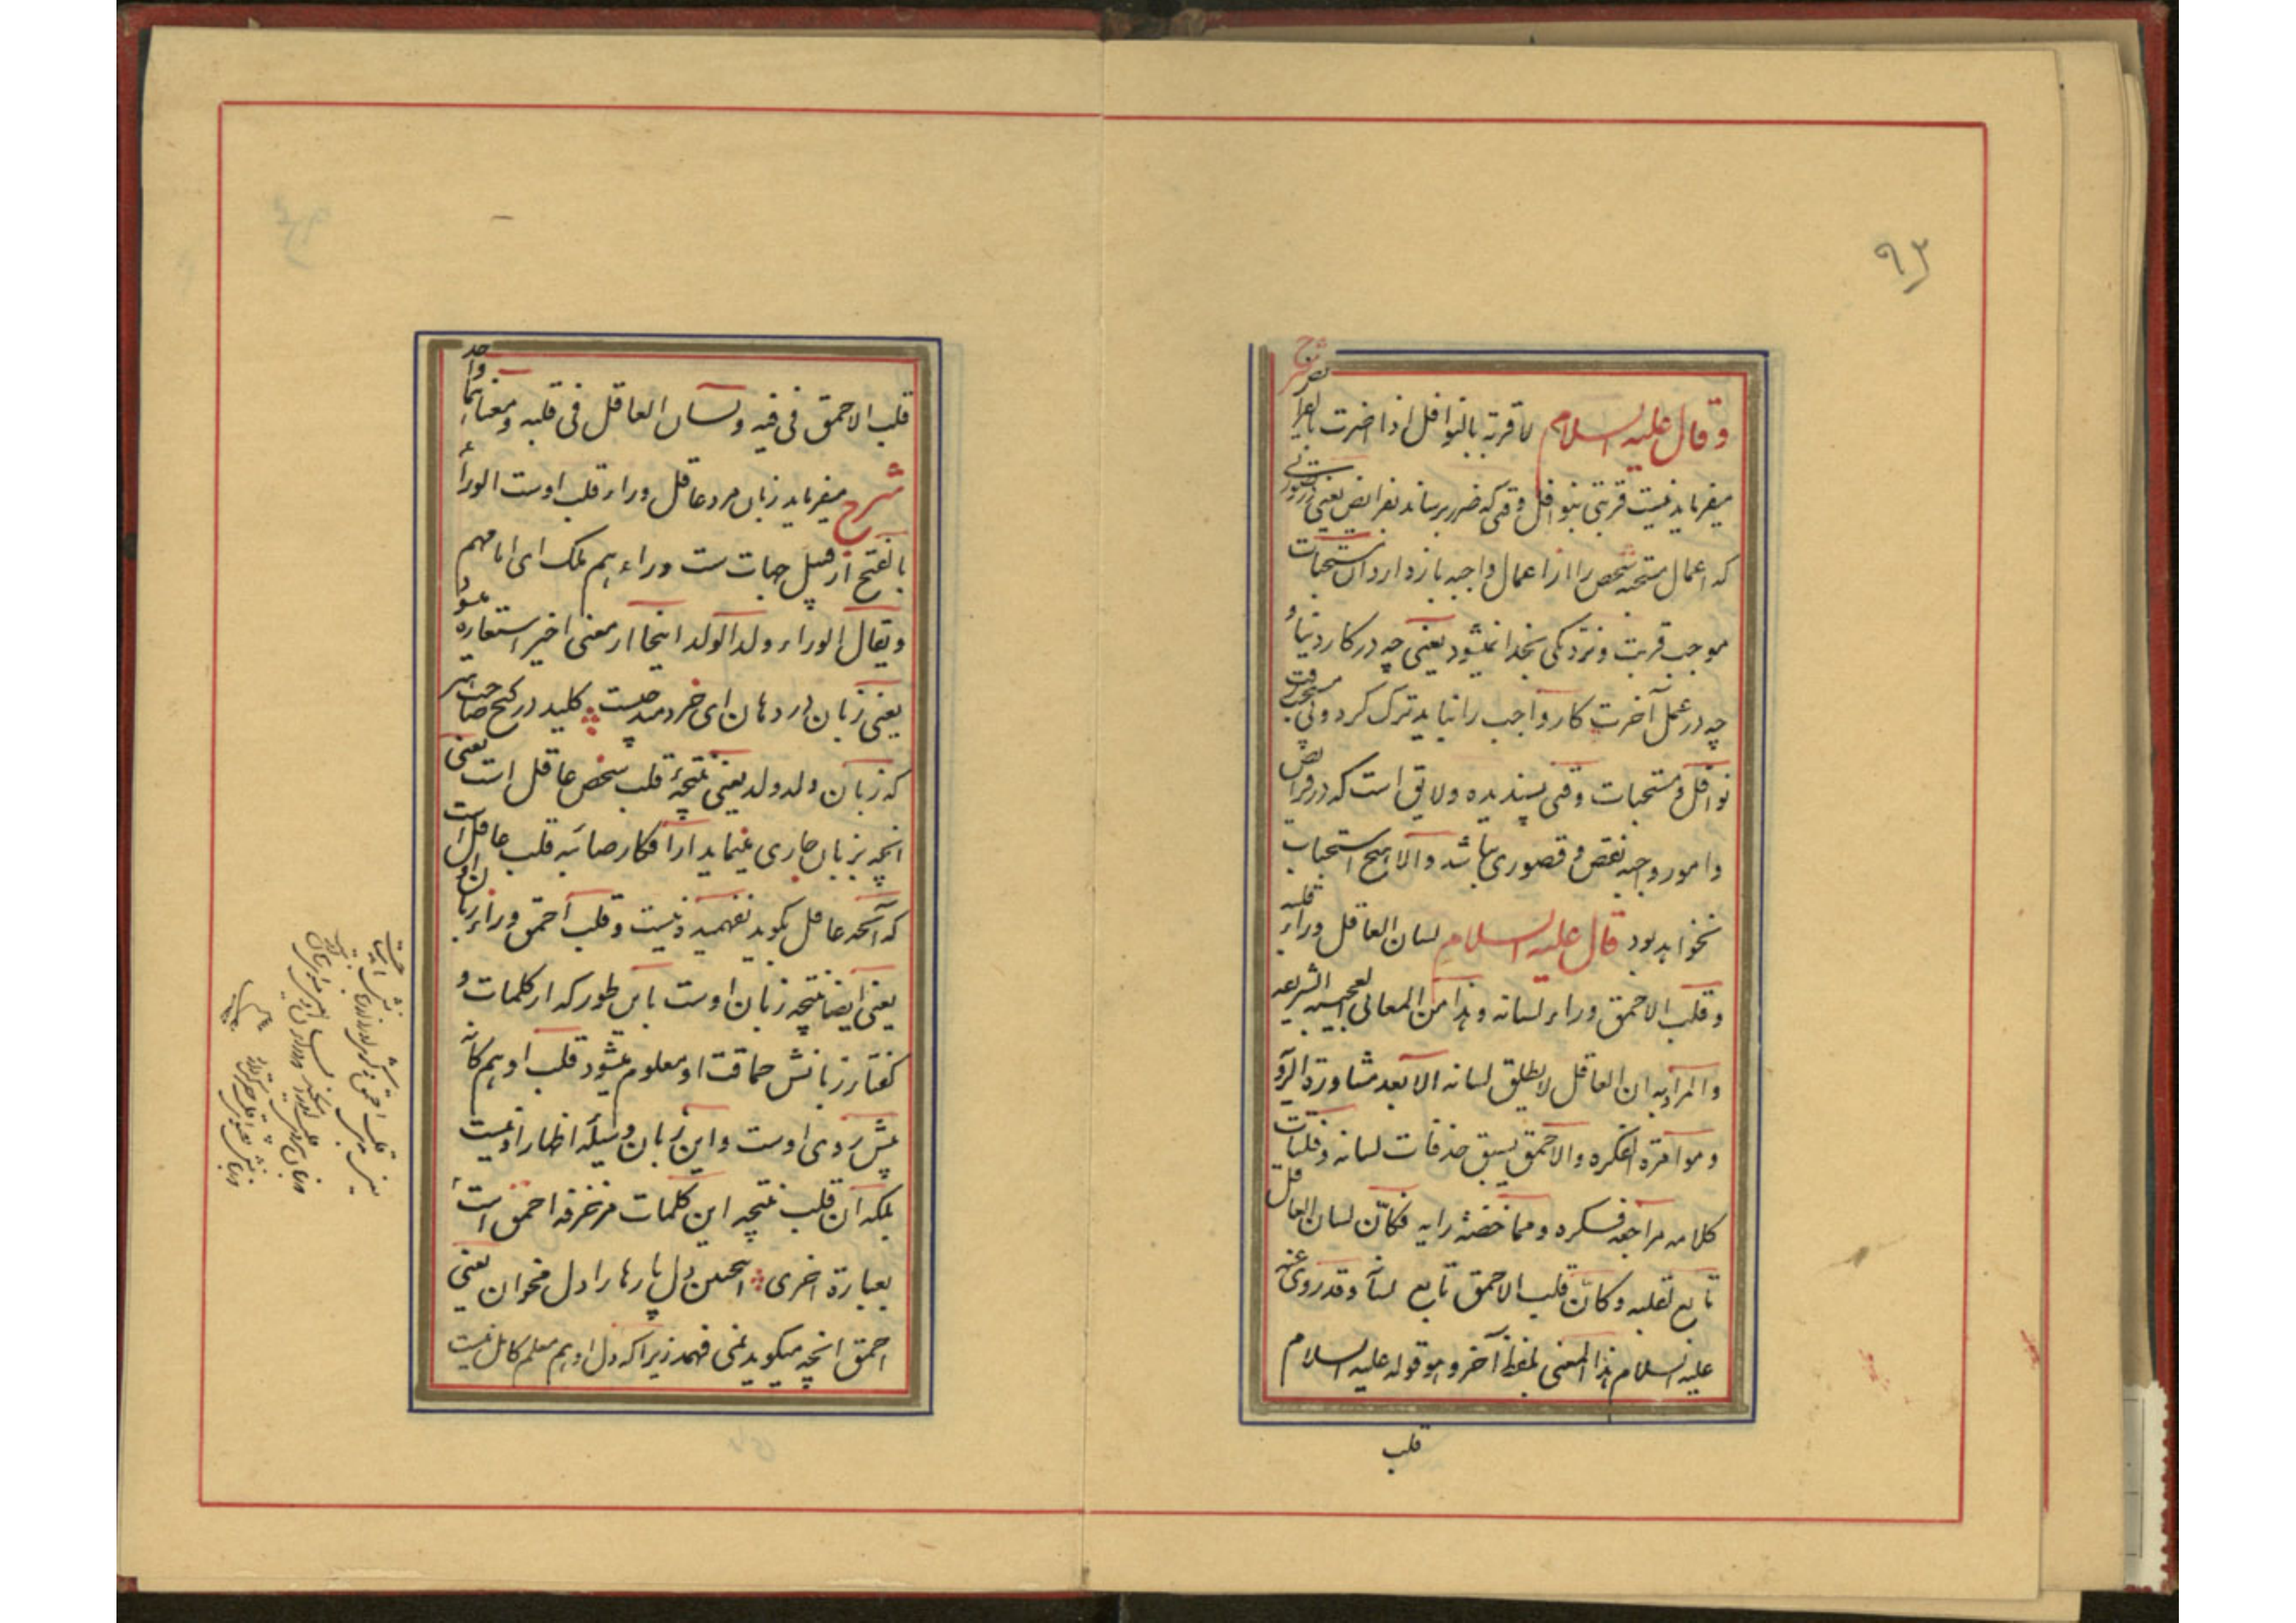 ۹۳
وقال علیه السلام لا قربة بالنوافل اذا اضرت بالفرائض شرح
میفرماید نیست قربتی بنوافل وقتی که ضرر برساند بفرائض یعنی در صورتی
که اعمال مستحبه شخص را از اعمال واجبه بازدارد آن مستحبات
موجب قربت و نزدیکی بخدا نمیشود یعنی چه در کار دنیا و
چه در عمل آخرت کار واجب را نباید ترک کرد و پی مستحب رفت
نوافل و مستحبات وقتی پسندیده و لایق است که در فرایض
و امور واجبه نقص و قصوری نباشد والا هیچ استحباب
نخواهد بود قال علیه السلام لسان العاقل وراء قلبه
وقلب الاحمق وراء لسانه وهذا من المعانی العجیبه الشریعه
والمراد به ان العاقل لا یطلق لسانه الا بعد مشاورة الرؤ
وموامرة الفکره والاحمق یسبق حذفات لسانه وفلتات
کلامه مراجعه فکره ومماخضة رایه فکأن لسان العاقل
تابع لقلبه وکأن قلب الاحمق تابع لسانه وقد روی عنه
علیه السلام هذا المعنی بلفظ آخر وهو قوله علیه السلام
قلب
قلب الاحمق فی فیه ولسان العاقل فی قلبه ومعناهما واحد
شرح میفرماید زبان مرد عاقل وراء قلب اوست الوراء
بالفتح از قبیل جهات ست وراءهم ملک ای امامهم
ویقال الوراء ولد الولد اینجا از معنی اخیر استعاره شود
یعنی زبان در دهان ای خردمند چیست کلید در گنج صاحب هنر
که زبان ولد ولد یعنی نتیجهٔ قلب شخص عاقل است یعنی
آنچه بزبان جاری مینماید از افکار صائبه قلب عاقل است
که آنچه عاقل بگوید نفهمیده نیست و قلب احمق وراء زبان او
یعنی ایضا نتیجه زبان اوست باین طور که از کلمات و
گفتار زبانش حماقت او معلوم میشود قلب او هم کانه
پیش روی اوست و این زبان وسیله اظهار او نیست
بلکه آن قلب نتیجه این کلمات مزخرفه احمق است
بعبارة اخری اینچنین دل پارها را دل مخوان یعنی
احمق آنچه میگوید نمی فهمد زیرا که دل او هم معلم کامل نیست